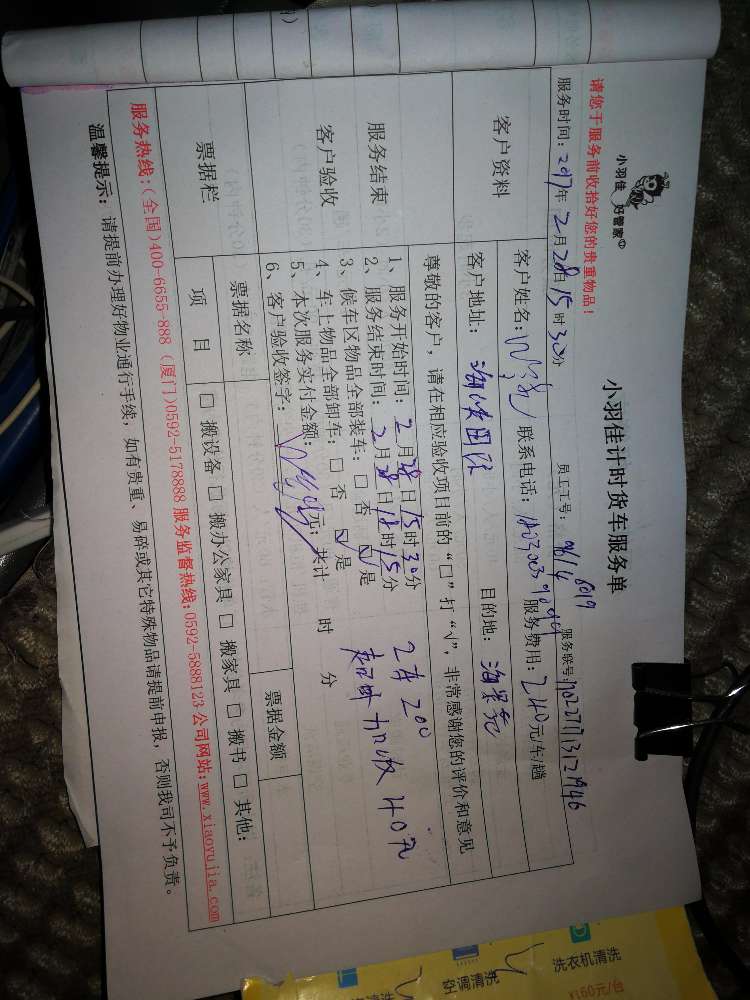 小羽佳 好管家
小羽佳计时货车服务单
请您于服务前收拾好您的贵重物品！
员工工号：9614 6019 服务联号：
服务时间：2017年2月28日15时30分
客户资料
客户姓名： 联系电话： 服务费用：240元车/趟
客户地址： 目的地：海景
服务结束
客户验收
尊敬的客户，请在相应验收项目前的“口”打“√”，非常感谢您的评价和意见
1、服务开始时间：2月28日15时30分
2、服务结束时间：2月28日18时15分
3、候车区物品全部装车：□ 否 ☑ 是
4、车上物品全部卸车：□ 否 ☑ 是
5、本次服务实付金额： 元；共计 时 分
6、客户验收签字：
2车200
加收40元
票据栏
票据名称
票据金额
项 目
□ 搬设备 □ 搬办公家具 □ 搬家具 □ 搬书 □ 其他：
服务热线：(全国)400-6655-888 (厦门)0592-5178888 服务监督热线：0592-5888123 公司网站：www.xiaoyujia.com
温馨提示： 请提前办理好物业通行手续，如有贵重、易碎或其它特殊物品请提前申报，否则我司不予负责。
洗衣机清洗
160元/台
空调清洗